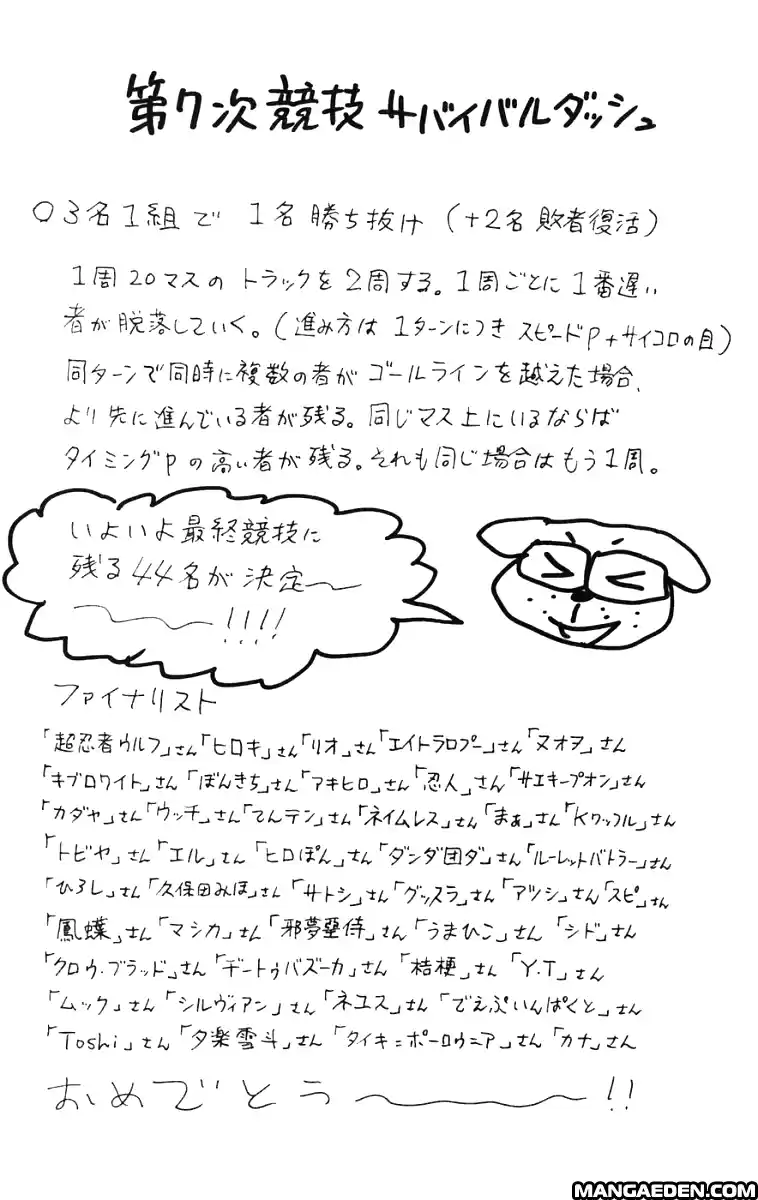 第7次競技サバイバルダッシュ
○3名1組で 1名勝ち抜け (+2名敗者復活)
1周20マスのトラックを2周する。1周ごとに1番遅い
者が脱落していく。(進み方は1ターンにつきスピードP+サイコロの目)
同ターンで同時に複数の者がゴールラインを越えた場合、
より先に進んでいる者が残る。同じマス上にいるならば
タイミングPの高い者が残る。それも同じ場合はもう1周。
いよいよ最終競技に
残る44名が決定〜
〜〜!!!!
ファイナリスト
「超忍者ウルフ」さん「ヒロキ」さん「リオ」さん「エイトラロプー」さん「ヌオヲ」さん
「キブロワイト」さん「ぼんきち」さん「アキヒロ」さん「忍人」さん「サエキープオン」さん
「カダヤ」さん「ウッチ」さん「てんテン」さん「ネイムレス」さん「まぁ」さん「Kワッフル」さん
「トビヤ」さん「エル」さん「ヒロぽん」さん「ダンダ団ダ」さん「ルーレットバトラー」さん
「ひろし」さん「久保田みほ」さん「サトシ」さん「グッスラ」さん「アツシ」さん「スピ」さん
「鳳蝶」さん「マシカ」さん「邪夢堊侍」さん「うまひこ」さん「シド」さん
「クロウ・ブラッド」さん「ヂートゥバズーカ」さん「桔梗」さん「Y.T」さん
「ムック」さん「シルヴィアン」さん「ネユス」さん「でえぷいんぱくと」さん
「Toshi」さん「夕楽雲斗」さん「タイキ=ポーロウニア」さん「カナ」さん
おめでとう〜!!
MANGAEDEN.COM